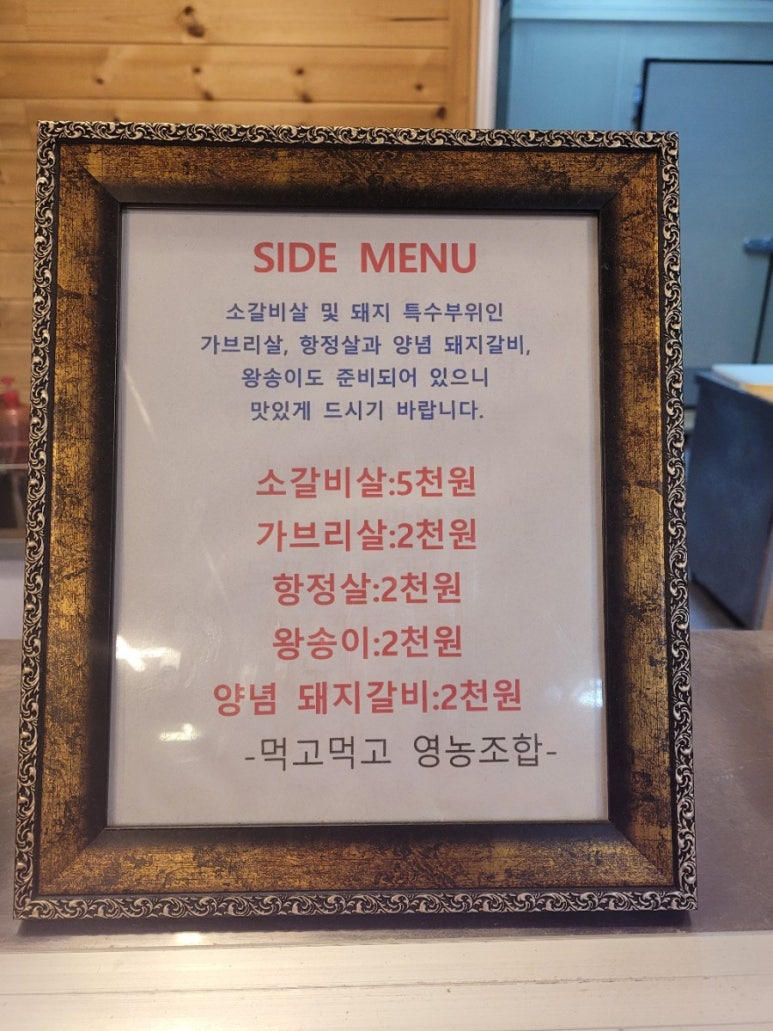 SIDE MENU
소갈비살 및 돼지 특수부위인
가브리살, 항정살과 양념 돼지갈비,
왕송이도 준비되어 있으니
맛있게 드시기 바랍니다.
소갈비살:5천원
가브리살:2천원
항정살:2천원
왕송이:2천원
양념 돼지갈비:2천원
-먹고먹고 영농조합-